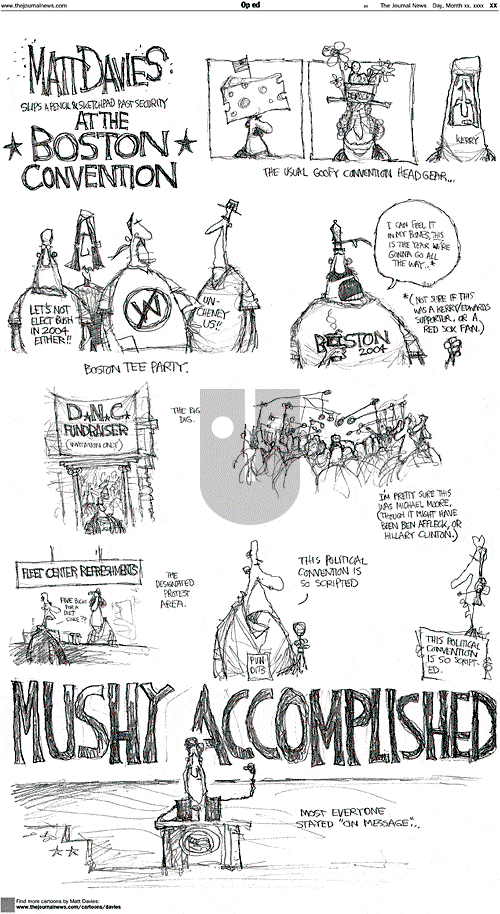 www.thejournalnews.com
Op ed
xx
The Journal News
Day, Month xx, xxxx
xx
MATT DAVIES
SLIPS A PENCIL & SKETCHPAD PAST SECURITY
AT THE
BOSTON
CONVENTION
KERRY
THE USUAL GOOFY CONVENTION HEADGEAR...
LET'S NOT
ELECT BUSH
IN 2004
EITHER!!
W
UN-
CHENEY
US!!
BOSTON TEE PARTY.
I CAN FEEL IT
IN MY BONES, THIS
IS THE YEAR WE'RE
GONNA GO ALL
THE WAY..*
BOSTON
2004
*(NOT SURE IF THIS
WAS A KERRY/EDWARDS
SUPPORTER, OR A
RED SOX FAN.)
D.N.C.
FUNDRAISER
(INVITATION ONLY)
THE BIG
DIG.
I'M PRETTY SURE THIS
WAS MICHAEL MOORE.
(THOUGH IT MIGHT HAVE
BEEN BEN AFFLECK, OR
HILLARY CLINTON.)
FLEET CENTER REFRESHMENTS
FIVE BUCKS
FOR A
DIET
COKE??
THE
DESIGNATED
PROTEST
AREA.
THIS POLITICAL
CONVENTION IS
SO SCRIPTED
PUN
DITS
THIS POLITICAL
CONVENTION
IS SO SCRIPT-
ED.
MUSHY ACCOMPLISHED
MOST EVERYONE
STAYED "ON MESSAGE"...
Find more cartoons by Matt Davies:
www.thejournalnews.com/cartoons/davies